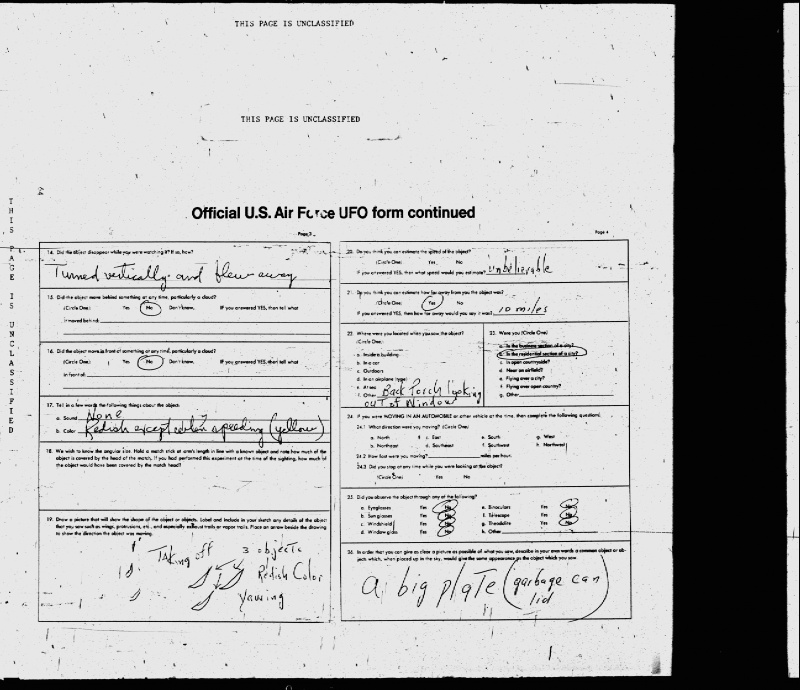 THIS PAGE IS UNCLASSIFIED
THIS PAGE IS UNCLASSIFIED
THIS PAGE IS UNCLASSIFIED
64
Official U.S. Air Force UFO form continued
Page 3
14. Did the object disappear while you were watching it? If so, how?
Turned vertically and flew away
15. Did the object move behind something at any time, particularly a cloud?
(Circle One) Yes No Don't know. IF you answered YES, then tell what
it moved behind:
16. Did the object move in front of something at any time, particularly a cloud?
(Circle One) Yes No Don't know. IF you answered YES, then tell what
in front of:
17. Tell in a few words the following things about the object:
a. Sound None
b. Color Redish except when speeding (yellow)
18. We wish to know the angular size. Hold a match stick at arm's length in line with a known object and note how much of the
object is covered by the head of the match. If you had performed this experiment at the time of the sighting, how much of
the object would have been covered by the match head?
19. Draw a picture that will show the shape of the object or objects. Label and include in your sketch any details of the object
that you saw such as wings, protrusions, etc., and especially exhaust trails or vapor trails. Place an arrow beside the drawing
to show the direction the object was moving.
Taking off
3 objects
Redish Color
Yawing
Page 4
20. Do you think you can estimate the speed of the object?
(Circle One) Yes No
If you answered YES, then what speed would you estimate? Unbilievable
21. Do you think you can estimate how far away from you the object was?
(Circle One) Yes No
If you answered YES, then how far away would you say it was? 10 miles
22. Where were you located when you saw the object?
(Circle One)
a. Inside a building
b. In a car
c. Outdoors
d. In an airplane (type)
e. At sea
f. Other Back Porch looking
out of Window
23. Were you (Circle One)
a. In the business section of a city?
b. In the residential section of a city?
c. In open countryside?
d. Near an airfield?
e. Flying over a city?
f. Flying over open country?
g. Other
24. IF you were MOVING IN AN AUTOMOBILE or other vehicle at the time, then complete the following questions:
24.1 What direction were you moving? (Circle One)
a. North c. East e. South g. West
b. Northeast d. Southeast f. Southwest h. Northwest
24.2 How fast were you moving? miles per hour.
24.3 Did you stop at any time while you were looking at the object?
(Circle One) Yes No
25. Did you observe the object through any of the following?
a. Eyeglasses Yes No e. Binoculars Yes No
b. Sun glasses Yes No f. Telescope Yes No
c. Windshield Yes No g. Theodolite Yes No
d. Window glass Yes No h. Other
26. In order that you can give as clear a picture as possible of what you saw, describe in your own words a common object or ob-
jects which, when placed up in the sky, would give the same appearance as the object which you saw.
A big plate (garbage can
lid)